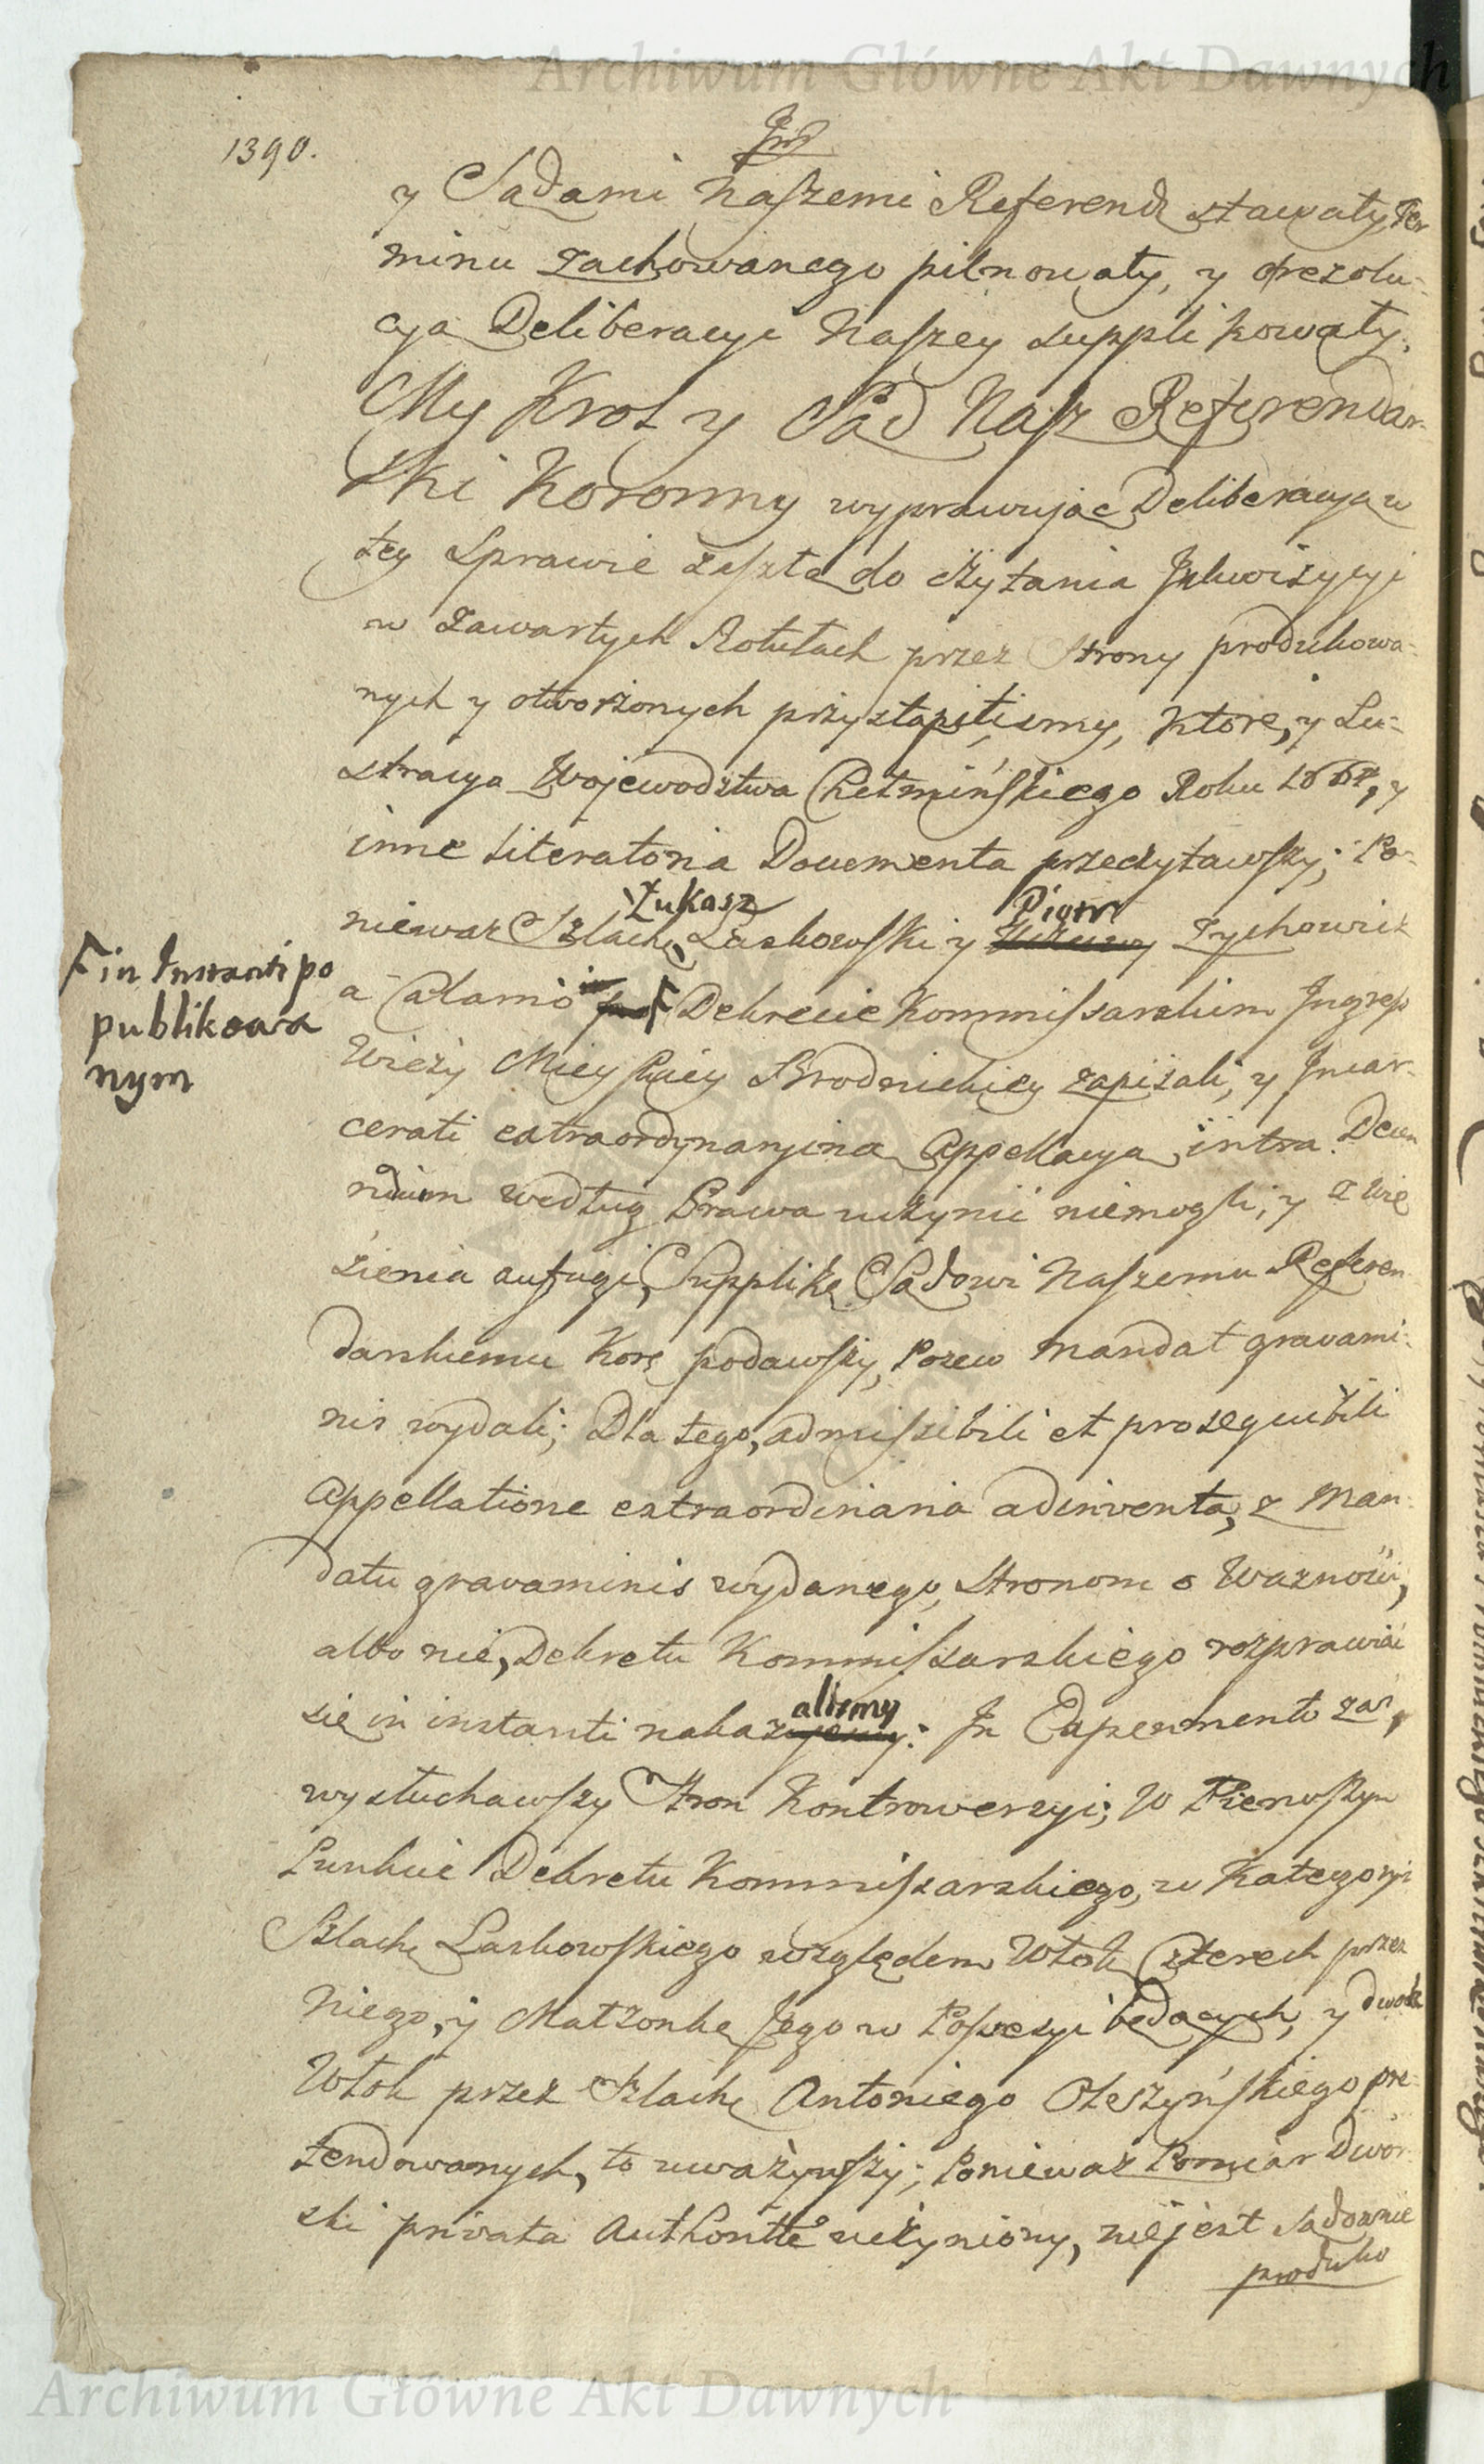 Archiwum Główne Akt Dawnych
1390.
y Sądami Naszemi Referend stawały, Ter
minu zachowanego pilnowały, y o rezolu-
cyą Deliberacyi Naszey supplikowały.
My Krol y Sąd Nasz Referendar-
ski Koronny wyprawując Deliberacyą w
tey Sprawie zaszłą do czytania Inkwizycyi
w zawartych Rotułach przez Strony produkowa-
nych y otworzonych przystąpiliśmy, które, y Lu-
stracyą Wojewodztwa Chełmińskiego Roku 1664, y
inne literatoria Documenta przeczytawszy; Po-
niewaz Szlach Łukasz Laskowski y Piotr Zychowicz
a Calamo F Dekrecie Kommissarskim Ingress
F in Instanti po
publikowa
nym
Wieży Mieyskiey Brodnickiey zapisali, y Incar-
cerati extraordynaryiną Appellacyą intra Decen
nium według Prawa uczynić niemogli, y z wię
zienia aufugi, Supplikę Sądowi Naszemu Referen
darskiemu Kor podawszy, Pozew Mandat gravami-
nis wydali; Dla tego, admissibili et prosequibili
Appellatione extraordinaria adinventa, z Man-
datu gravaminis wydanego, Stronom o Waznośći,
albo nie, Dekretu Kommissarskiego rozprawić
się in instanti nakazalismy: In Experimento zaś,
wysłuchawszy Stron Kontrowersyi; W Pierwszym
Punkcie Dekretu Kommissarskiego, w Kategoryi
Szlach Laskowskiego względem Włok Czterech przez
Niego, y Małżonkę Jego w Possessyi będących, y dwoch
Włok przez Szlach Antoniego Olszyńskiego pre-
tendowanych, to uważywszy; Poniewaz Pomiar Dwor
ski privata Authoritte uczyniony, nie jest sądownie
produko
Archiwum Główne Akt Dawnych